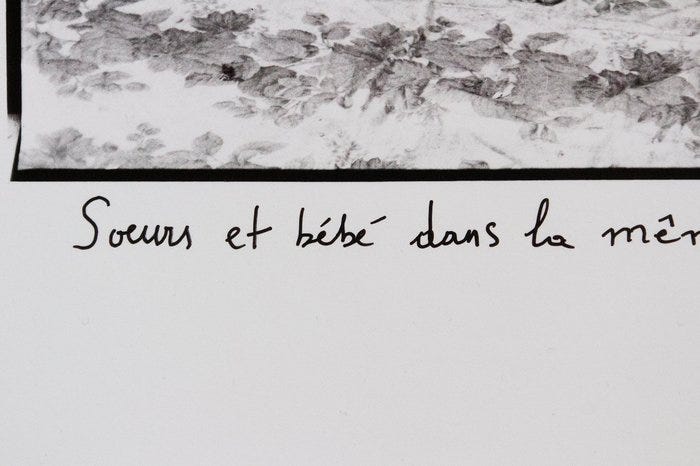 Soeurs et bébé dans la mêm